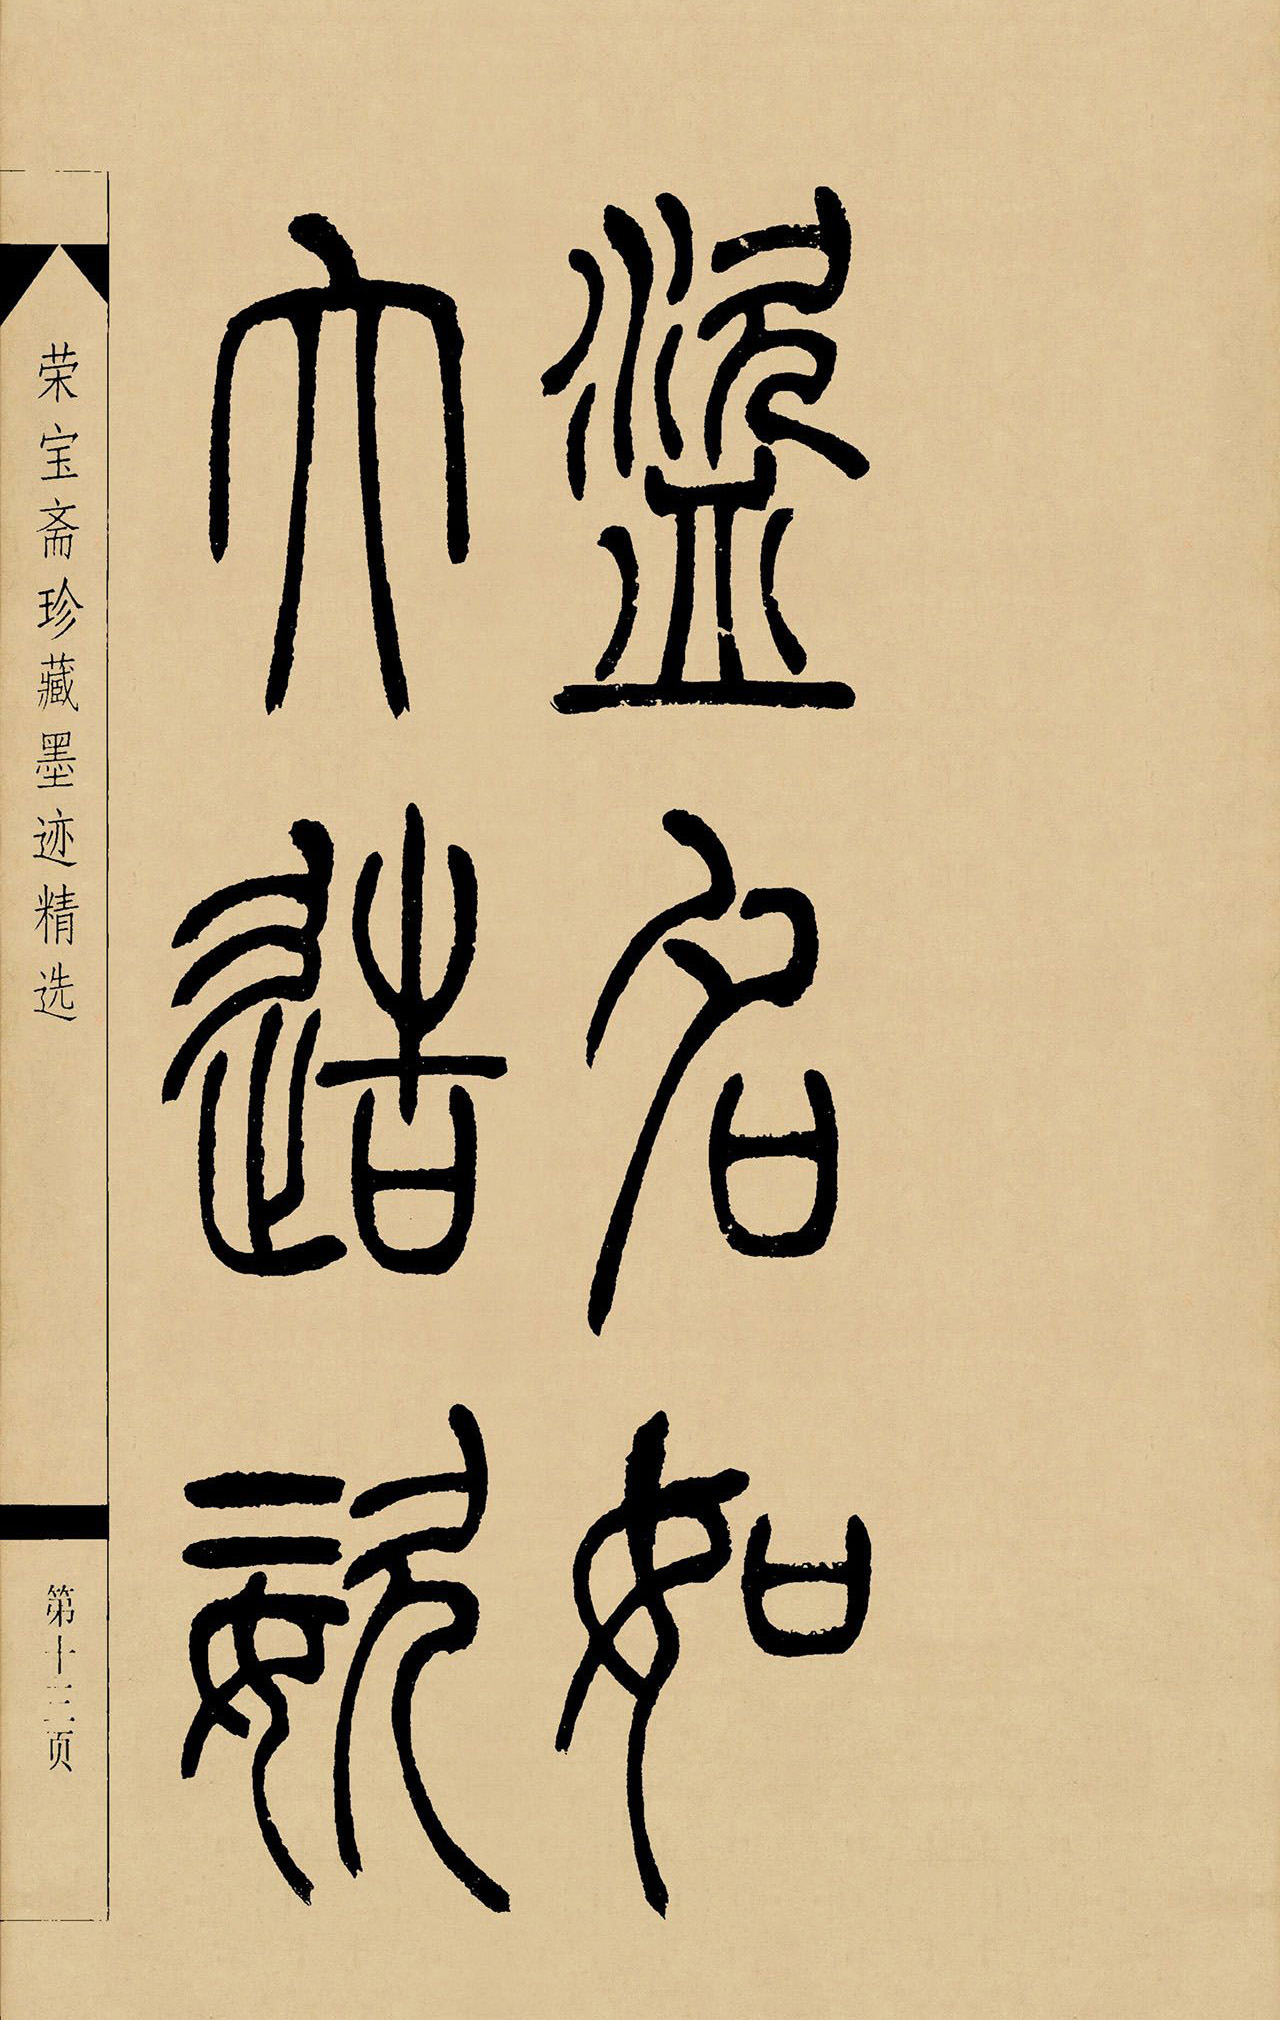 盜名如
大造姿
荣宝斋珍藏墨迹精选
第十三页